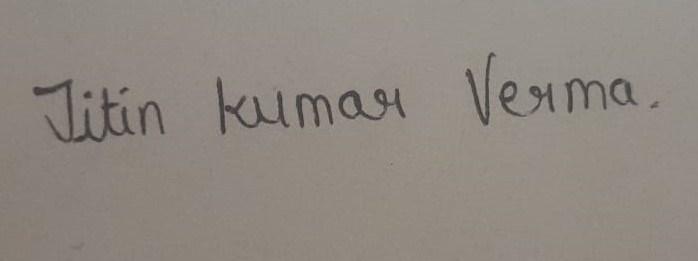 Jitin kumar Verma.